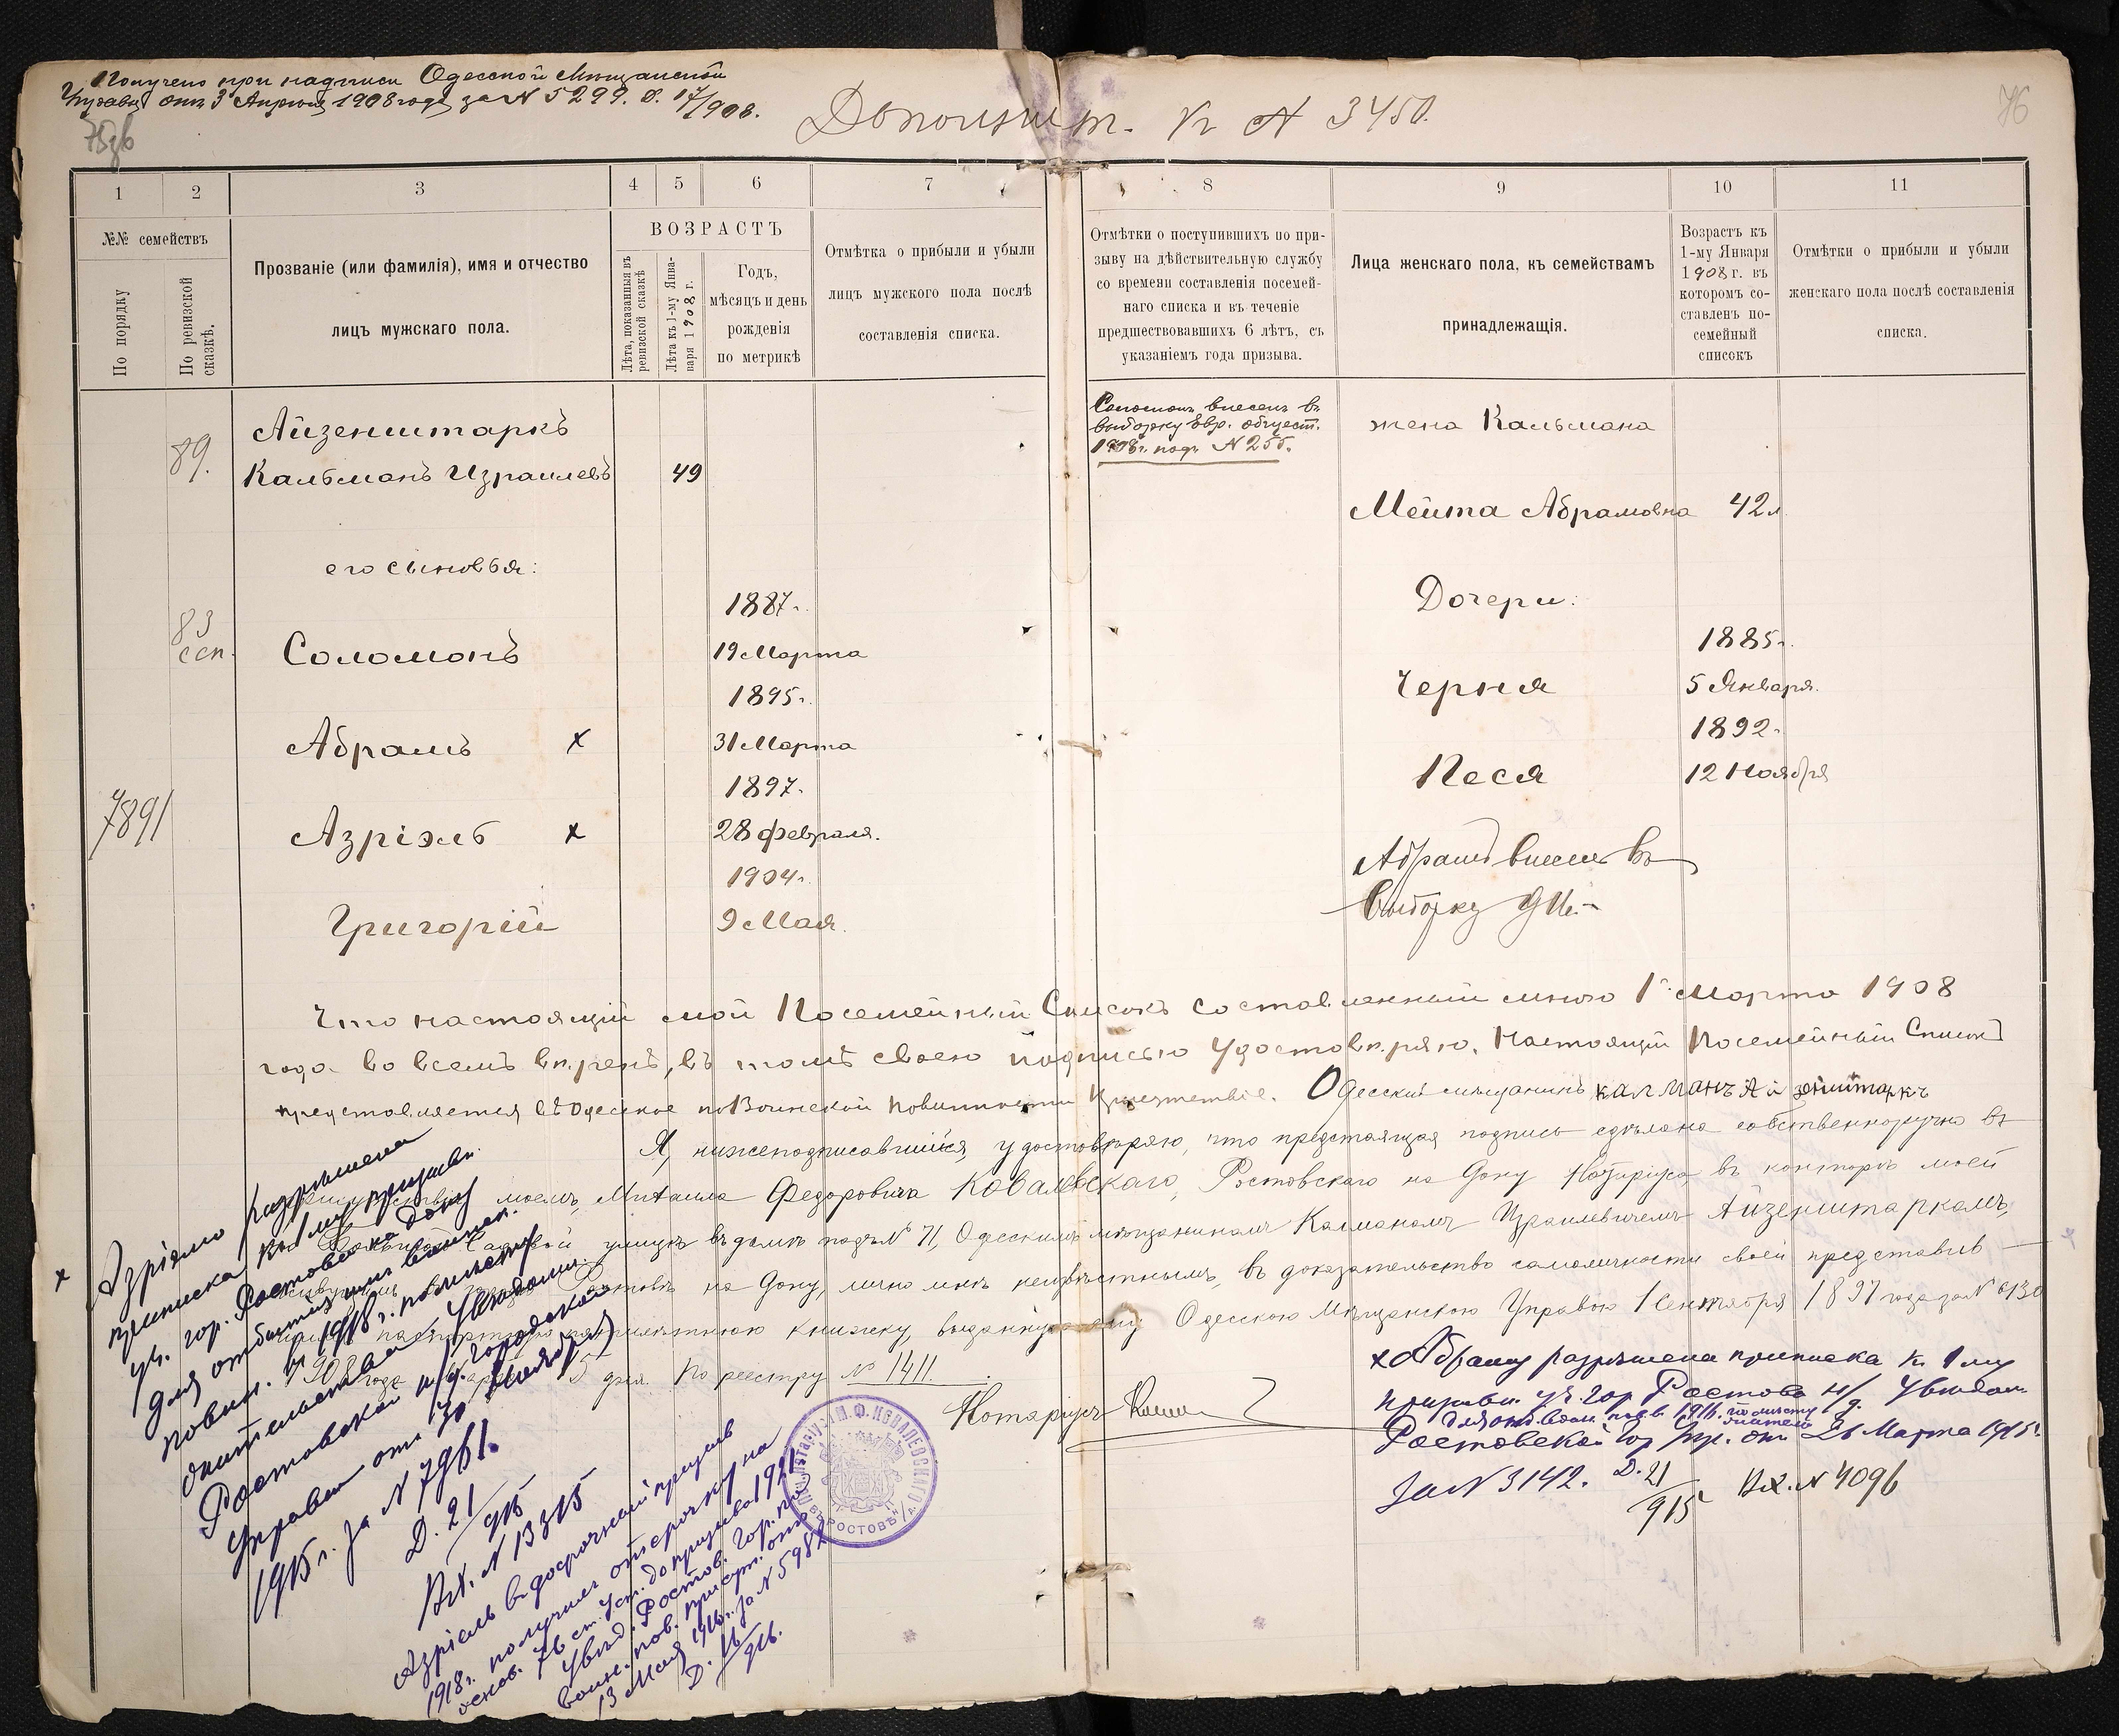 Получено при надписи Одесской Мѣщанской
Управы отъ 3 Апрѣля 1908 года за N 5299. Д. 17/908.
Дополнит. къ N 3450.
76
1
2
3
4
5
6
7
8
9
10
11
№№ семействъ
По порядку
По ревизской сказкѣ.
Прозваніе (или фамилія), имя и отчество
лицъ мужскаго пола.
ВОЗРАСТЪ
Лѣта, показанныя въ
ревизской сказкѣ
Лѣта къ 1-му Янва-
варя 1908 г.
Годъ,
мѣсяцъ и день
рожденія
по метрикѣ
Отмѣтка о прибыли и убыли
лицъ мужского пола послѣ
составленія списка.
Отмѣтки о поступившихъ по при-
зыву на дѣйствительную службу
со времени составленія посемей-
наго списка и въ теченіе
предшествовавшихъ 6 лѣтъ, съ
указаніемъ года призыва.
Лица женскаго пола, къ семействамъ
принадлежащія.
Возрастъ къ
1-му Января
1908 г. въ
которомъ со-
ставленъ по-
семейный
списокъ
Отмѣтки о прибыли и убыли
женскаго пола послѣ составленія
списка.
89.
Айзенштаркъ
Кальманъ Израилевъ 49
его сыновья:
83
1887г.
Соломонъ 19 Марта
1895г.
Абрамъ х 31 Марта
1897г.
7891
Азріэль х 28 февраля.
1904г.
Григорій 9 Мая.
Соломонъ внесенъ въ
выборку Евр. общест.
1908г. подъ N 255.
жена Кальмана
Мейта Абрамовна 42 л
Дочери:
1885г.
Черня 5 Января.
1892г.
Песя 12 Ноября
Абрамъ внесенъ въ
выборку
Что настоящій мой Посемейный Списокъ составленный мною 1го Марта 1908
года во всемъ вѣренъ, въ томъ своею подписью удостовѣряю. Настоящій Посемейный Списокъ
представляется въ Одесское по Воинской повинности Присутствіе. Одесскій мѣщанинъ калманъ Айзенштаркъ
Я, нижеподписавшійся, удостовѣряю, что предстоящая подпись сдѣлана собственноручно въ
присутствіи моемъ, Михаила Федоровича Ковалевскаго, Ростовскаго на Дону Нотаріуса въ конторѣ моей
Садовой улицѣ въ домѣ подъ № 71, Одесскимъ мѣщаниномъ Калманомъ Израилевичемъ Айзенштаркомъ,
Ростовѣ на Дону, лично мнѣ неизвѣстнымъ, въ доказательство самоличности своей представивъ
паспортную книжку, выданную ему Одесскою Мѣщанскою Управою 1 Сентября 1897 года за N 6130
1908 года Марта 15 дня. По реестру № 1411.
Нотаріусъ
М. Ф. КОВАЛЕВСКАГО
ВЪ РОСТОВѢ Н/Д.
х Азріэлю разрѣшена
приписка къ 1 му призывн.
уч. гор. Ростова на Дону
для отбытія имъ воинск.
повин. въ 1918 г. по мѣсту
жительства. Увѣдомл.
Ростовской н/Д. Городской
Управы отъ 30 Ноября
1915 г. за N 7961.
Д. 21/915
Вх. N 13315
Азріель въ досрочный призывъ
1918г. получилъ отсрочку на
основ. 76 ст. Уст. до призыва 1921г.
Увѣд. Ростов. Гор. по
воин. пов. присут. отъ
13 Мая 1916г. за N 5982
Д. 16/916.
х Абраму разрѣшена приписка къ 1 му
призывн. уч. гор. Ростова н/Д. Увѣдом.
для отб. воин. пов. въ 1916г. по мѣсту
жительс.
Ростовской Гор. Упр. отъ 26 Марта 1915г.
за N 3142. Д. 21/915г. Вх. N 4096